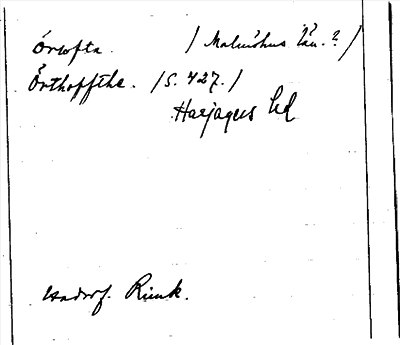 Örtofta. / Malmöhus län. ? /
Örthoffthe. / S. 427. /
Harjagers hd
Hadorf. Rimk.